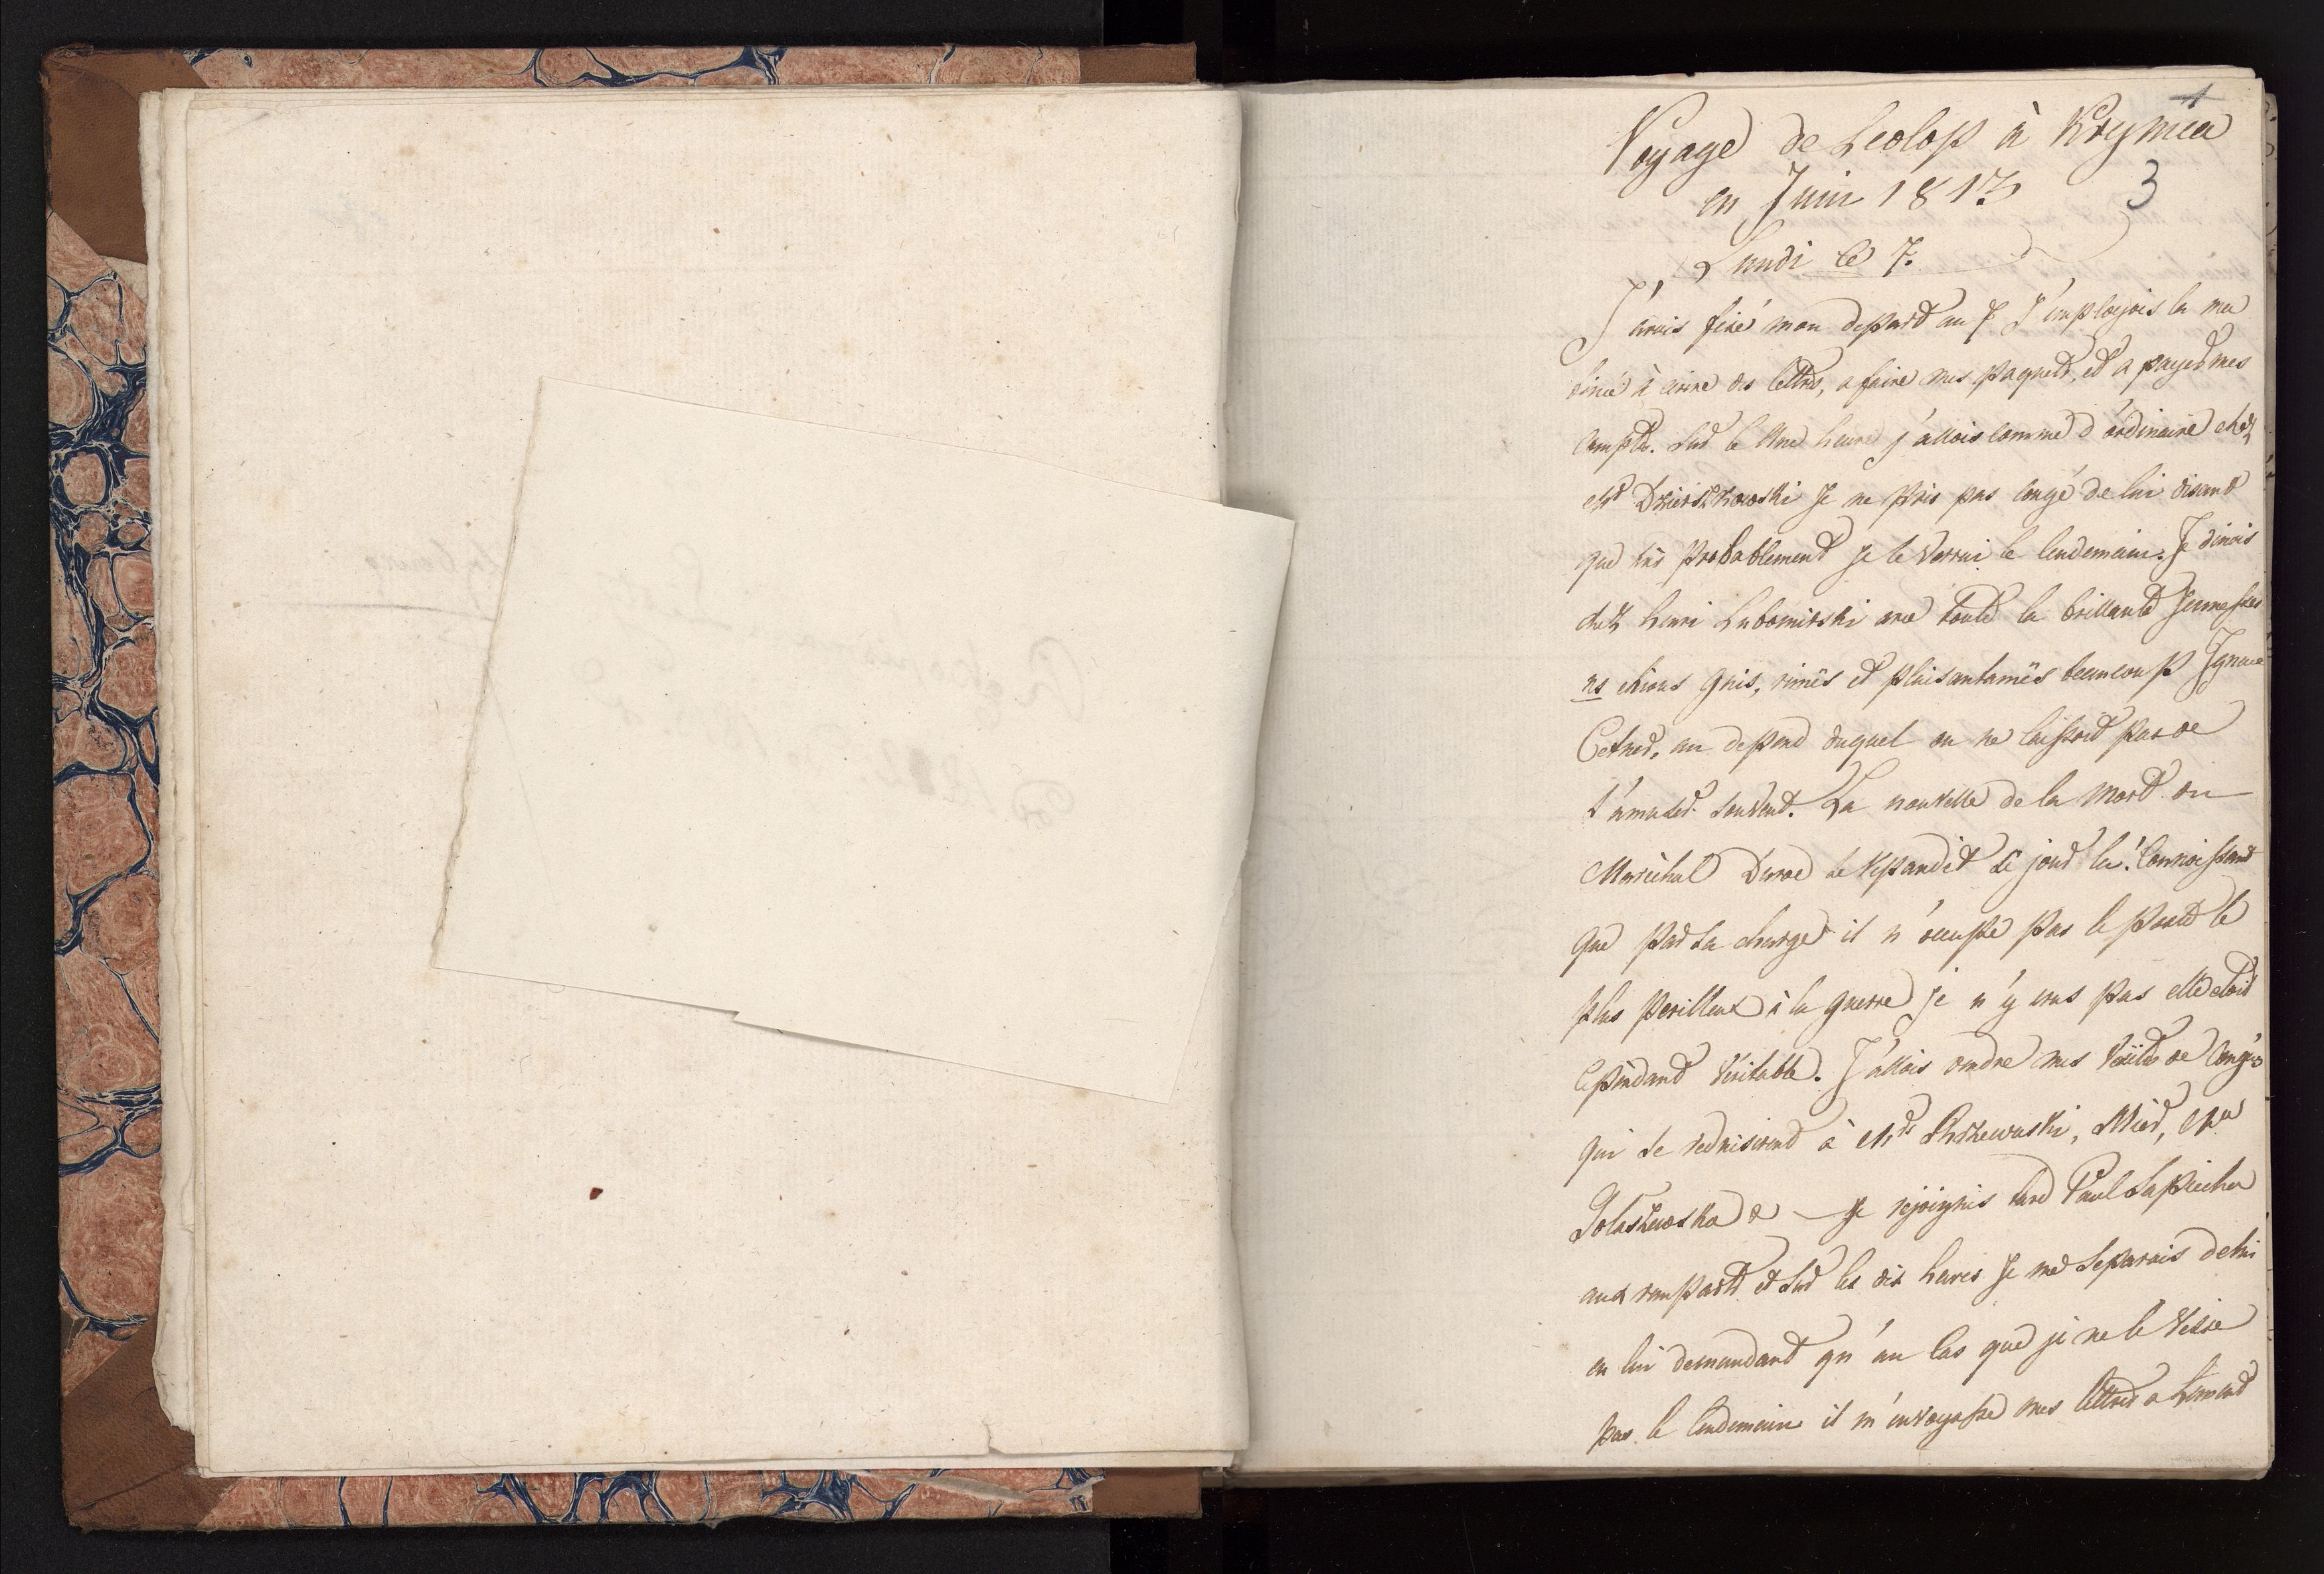 1
Voyage de Leolop à Krynica
en Juin 1813
3
Lundi le 7.
J'avois fixé mon depart au 7 J'emploÿois la ma
tinée à ecrire des lettres, a faire mes paquets, et a payer mes
comptes. Sur le Une heure j'allois comme d'ordinaire chez
Mr Dzierzkowski Je ne pris pas congé de lui disant
que très probablement je le verrai le lendemain. Je dinois
chez Henri Lubomirski avec toute la brillante jeunesse
ns etions gais, rimës et plaisantamës beaucoup Ignace
Cetner, au depend duquel on ne laissoit pas de
s'amuser souvent. La nouvelle de la mort du
Maréchal Duroc se repandit ce jour la! Connoissant
que par sa charge il n'occupe pas le poste le
plus perilleux à la guerre je n'y crus pas elle etoit
cependant véritable. J'allois rendre mes visites de congés
qui se reduisirent à Mrs Rzewuski, Mier, Me
Golaszewska & Je rejoignis tard Paul Sapieha
aux ramparts et sur les dix heures Je me separois de lui
en lui demandant qu'au cas que je ne le visse
pas le lendemain il m'envoyasse mes lettres a